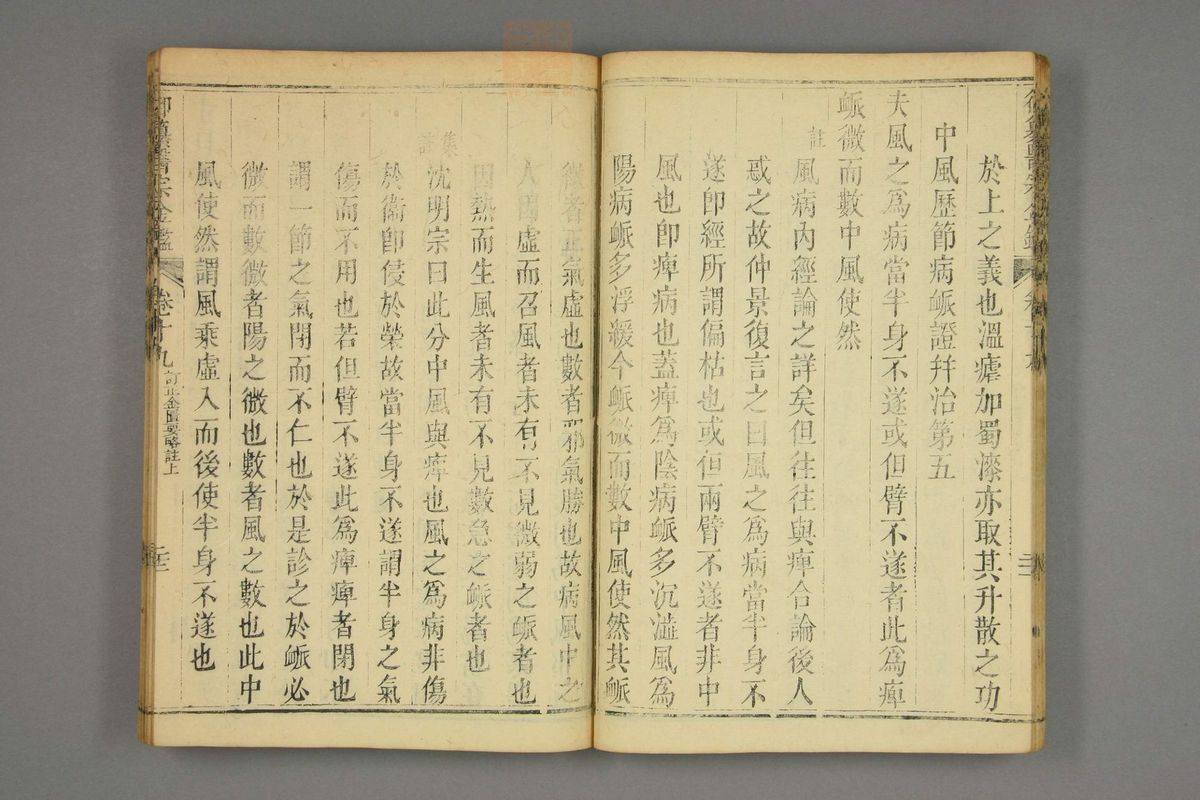 於上之義也溫瘧加蜀漆亦取其升散之功
中風歷節病脈證并治第五
夫風之為病當半身不遂或但臂不遂者此為痺
脈微而數中風使然
註風病內經論之詳矣但往往與痺合論後人
惑之故仲景復言之曰風之為病當半身不
遂即經所謂偏枯也或但兩臂不遂者非中
風也即痺病也蓋痺為陰病脈多沉澁風為
陽病脈多浮緩今脈微而數中風使然其脈
微者正氣虛也數者邪氣勝也故病風中之
人因虛而召風者未有不見微弱之脈者也
因熱而生風者未有不見數急之脈者也
集註
沈明宗曰此分中風與痺也風之為病非傷
於衞即侵於榮故當半身不遂謂半身之氣
傷而不用也若但臂不遂此為痺痺者閉也
謂一節之氣閉而不仁也於是診之於脈必
微而數微者陽之微也數者風之數也此中
風使然謂風乘虛入而後使半身不遂也
御纂醫宗金鑑
卷十九
訂正金匱要略註上